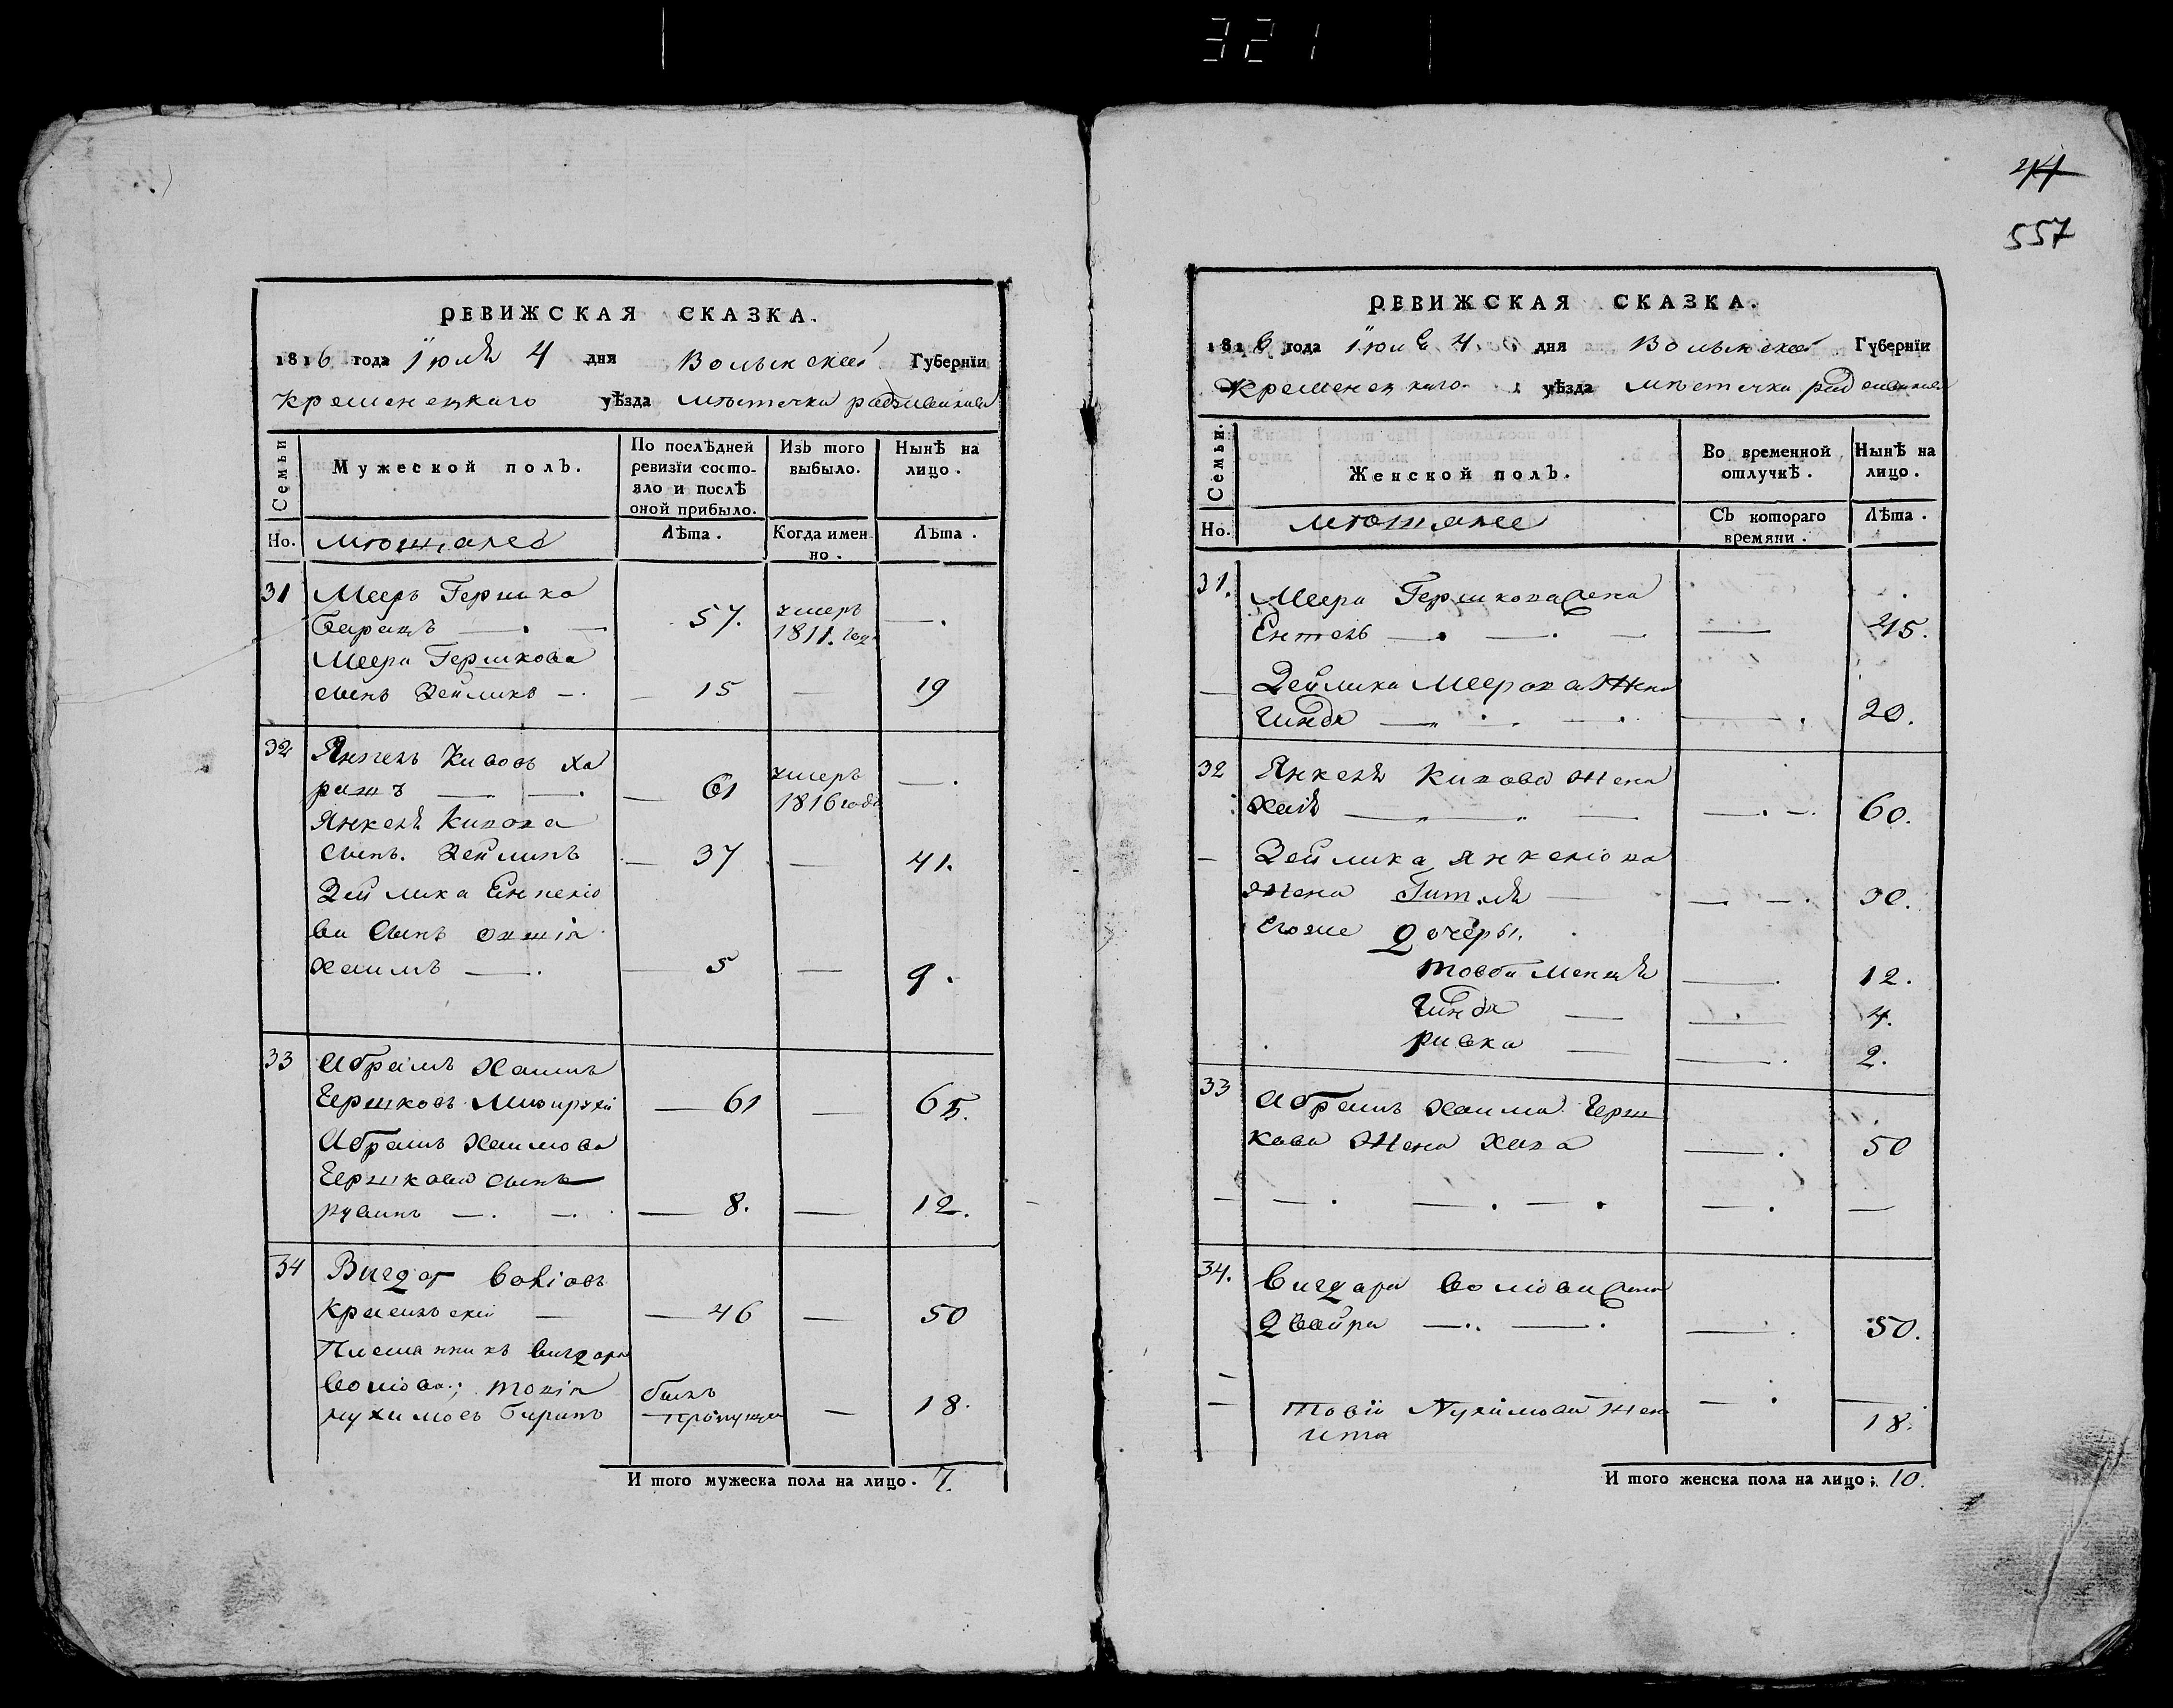 321
557
РЕВИЖСКАЯ СКАЗКА.
1816 года Іюля 4 дня Волынской Губернїи
Кременецкаго уѣзда мѣстечка радзивилова
Семьи
Мужеской полъ.
По послѣдней ревизїи состояло и послѣ оной прибыло.
Изъ того выбыло.
Нынѣ на лицо.
Но.
мѣщанее
Лѣта.
Когда именно.
Лѣта.
31 Мееръ Гершко
57. умеръ —.
1811. года
Меера Гершкова
сынъ Зейликъ —. — 15 — 19
32 Янкель Кивовъ Ха
ражъ — — 61 умеръ —.
1816 года
Янкеля Кивова
сынъ. Зейликъ — 37 — 41.
Зейлика Янкеліо
ва сынъ
Хаимъ —. — 5 — 9.
33 Абрамъ Хаимъ
Гершковъ — 61 — 65.
Абрамъ Хаимова
Гершкова сынъ
рувинъ —. —. — 8. — 12.
34 Вигдор Воліовъ
— — 46 — 50
Племянникъ Вигдора
Воліова; товія
нухимовъ баранъ былъ
пропущен — 18.
И того мужеска пола на лицо. 7.
РЕВИЖСКАЯ СКАЗКА.
1816 года Іюля 4 дня Волынской Губернїи
Кременецкаго уѣзда мѣстечка радзивилова
Семьи.
Женской полъ.
Во временной отлучкѣ.
Нынѣ на лицо.
Но.
мѣщанее
Съ котораго времяни.
Лѣта.
31. Меера Гершкова жена
Ентель —. —. — — 45.
— Зейлика Меерова Жена
Гинда — . — . — . 20.
32 Янкеля Кивова жена
Хая — — —. —. 60.
— Зейлика Янкеліова
жена Гитля — —. —. 30.
Егоже дочеры.
товба —. 12.
Гинда — — 4.
ривка — —. 2.
33 Абрамъ Хаима Герш
кова Жена Хава —. 50
— —. —. —. —. —
34. Вигдора Воліова жена
Двойра —. —. —. 50.
—
— товіи Нухимова Жена —. —
ита 18.
И того женска пола на лицо; 10.